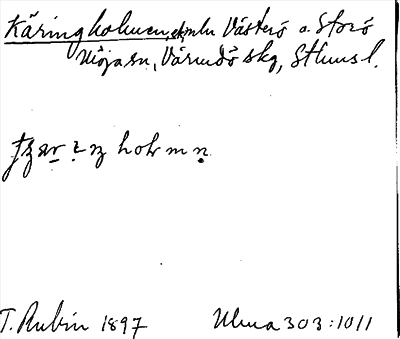 Käringholmen, ök mln Västerö o. Storö
Möja sn, Värmdö skg, Sthms l.
T. Rubin 1897 Ulma 303:1011